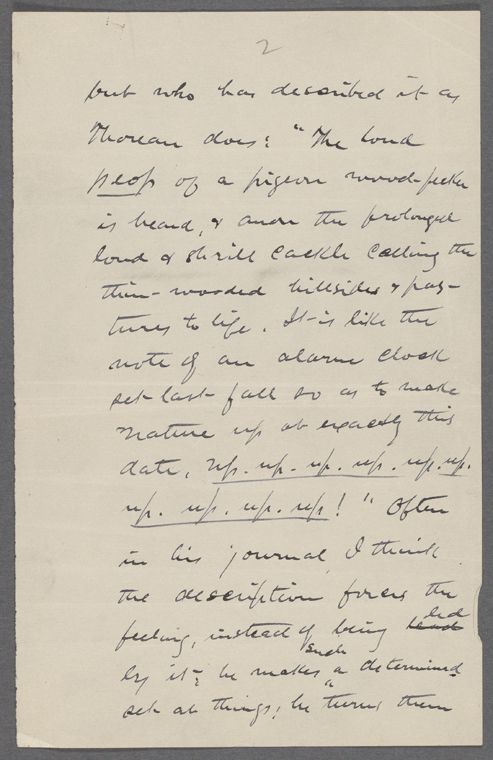 2
but who has described it as
Thoreau does: "The loud
peop of a pigeon wood-pecker
is heard, & anon the prolonged
loud & shrill cackle calling the
thin-wooded hillsides & pas-
tures to life. It is like the
note of an alarm clock
set last fall so as to make
Nature up at exactly this
date, up. up. up. up. up. up.
up. up. up. up!" Often
in his journal, I think
the description forces the
feeling, instead of being lead led
by it: he makes such a determined
set at things; he turns them